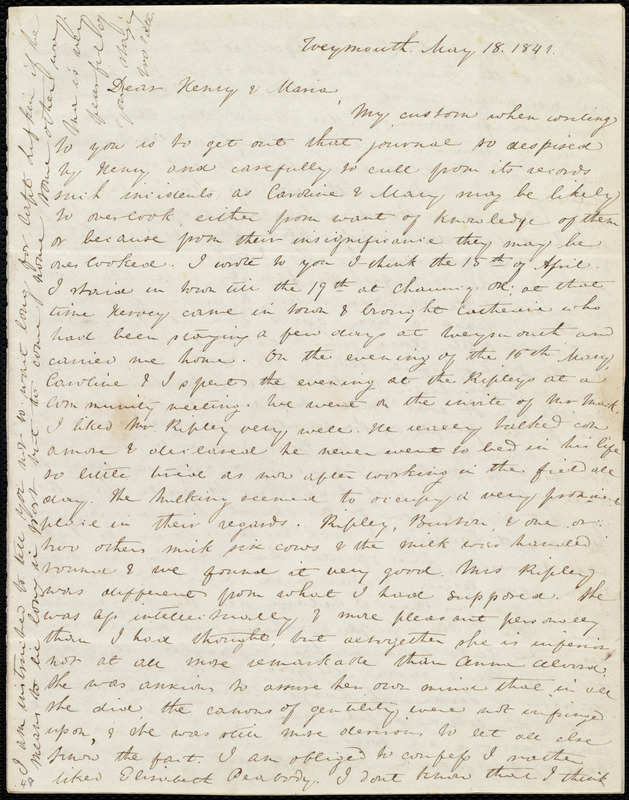 Weymouth. May 18. 1841.
Dear Henry & Maria,
My custom when writing
to you is to get out that journal so despised
by Henry and carefully to cull from its records
such incidents as Caroline & Mary may be likely
to overlook either from want of knowledge of them
or because from their insignificance they may be
overlooked. I wrote to you I think the 15th of April.
I staid in town till the 19th at Chauncy St. at that
time Hervey came in town & brought Catherine who
had been staying a few days at Weymouth and
carried me home. On the evening of the 16th Mary,
Caroline & I spent the evening at the Ripleys at a
community meeting. We went on the invite of Mr Mack.
I liked Mr. Ripley very well. He really talked con
amore & declared he never went to bed in his life
so little tired as now after working in the field all
day. The milking seemed to occupy a very prominent
place in their regards. Ripley, Burton, & one or
two others milk six cows & the milk was handed
round & we found it very good. Mrs Ripley
was different from what I had supposed. She
was less intellectually & more pleasant personally
than I had thought, but altogether she is inferior
not at all more remarkable than Anna Alvord.
She was anxious to assure her own mind that in all
she did the canons of gentility were not infringed
upon, & she was still more desirous to let all else
know the fact. I am obliged to confess I rather
liked Elizabeth Peabody. I dont know that I think
I am instructed to tell you not to want long for Capt
means to be long in port but to come home some other way
is very
fearful of
your